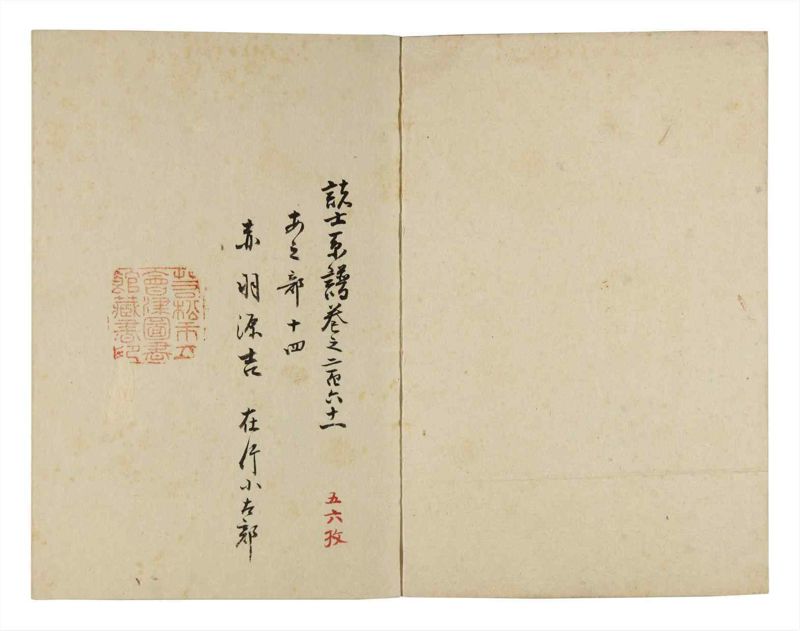 諸士系譜巻之二百六十一
五六枚
あ之部十四
赤羽源吉 在竹小太郎
若松市立
會津圖書
館藏書印